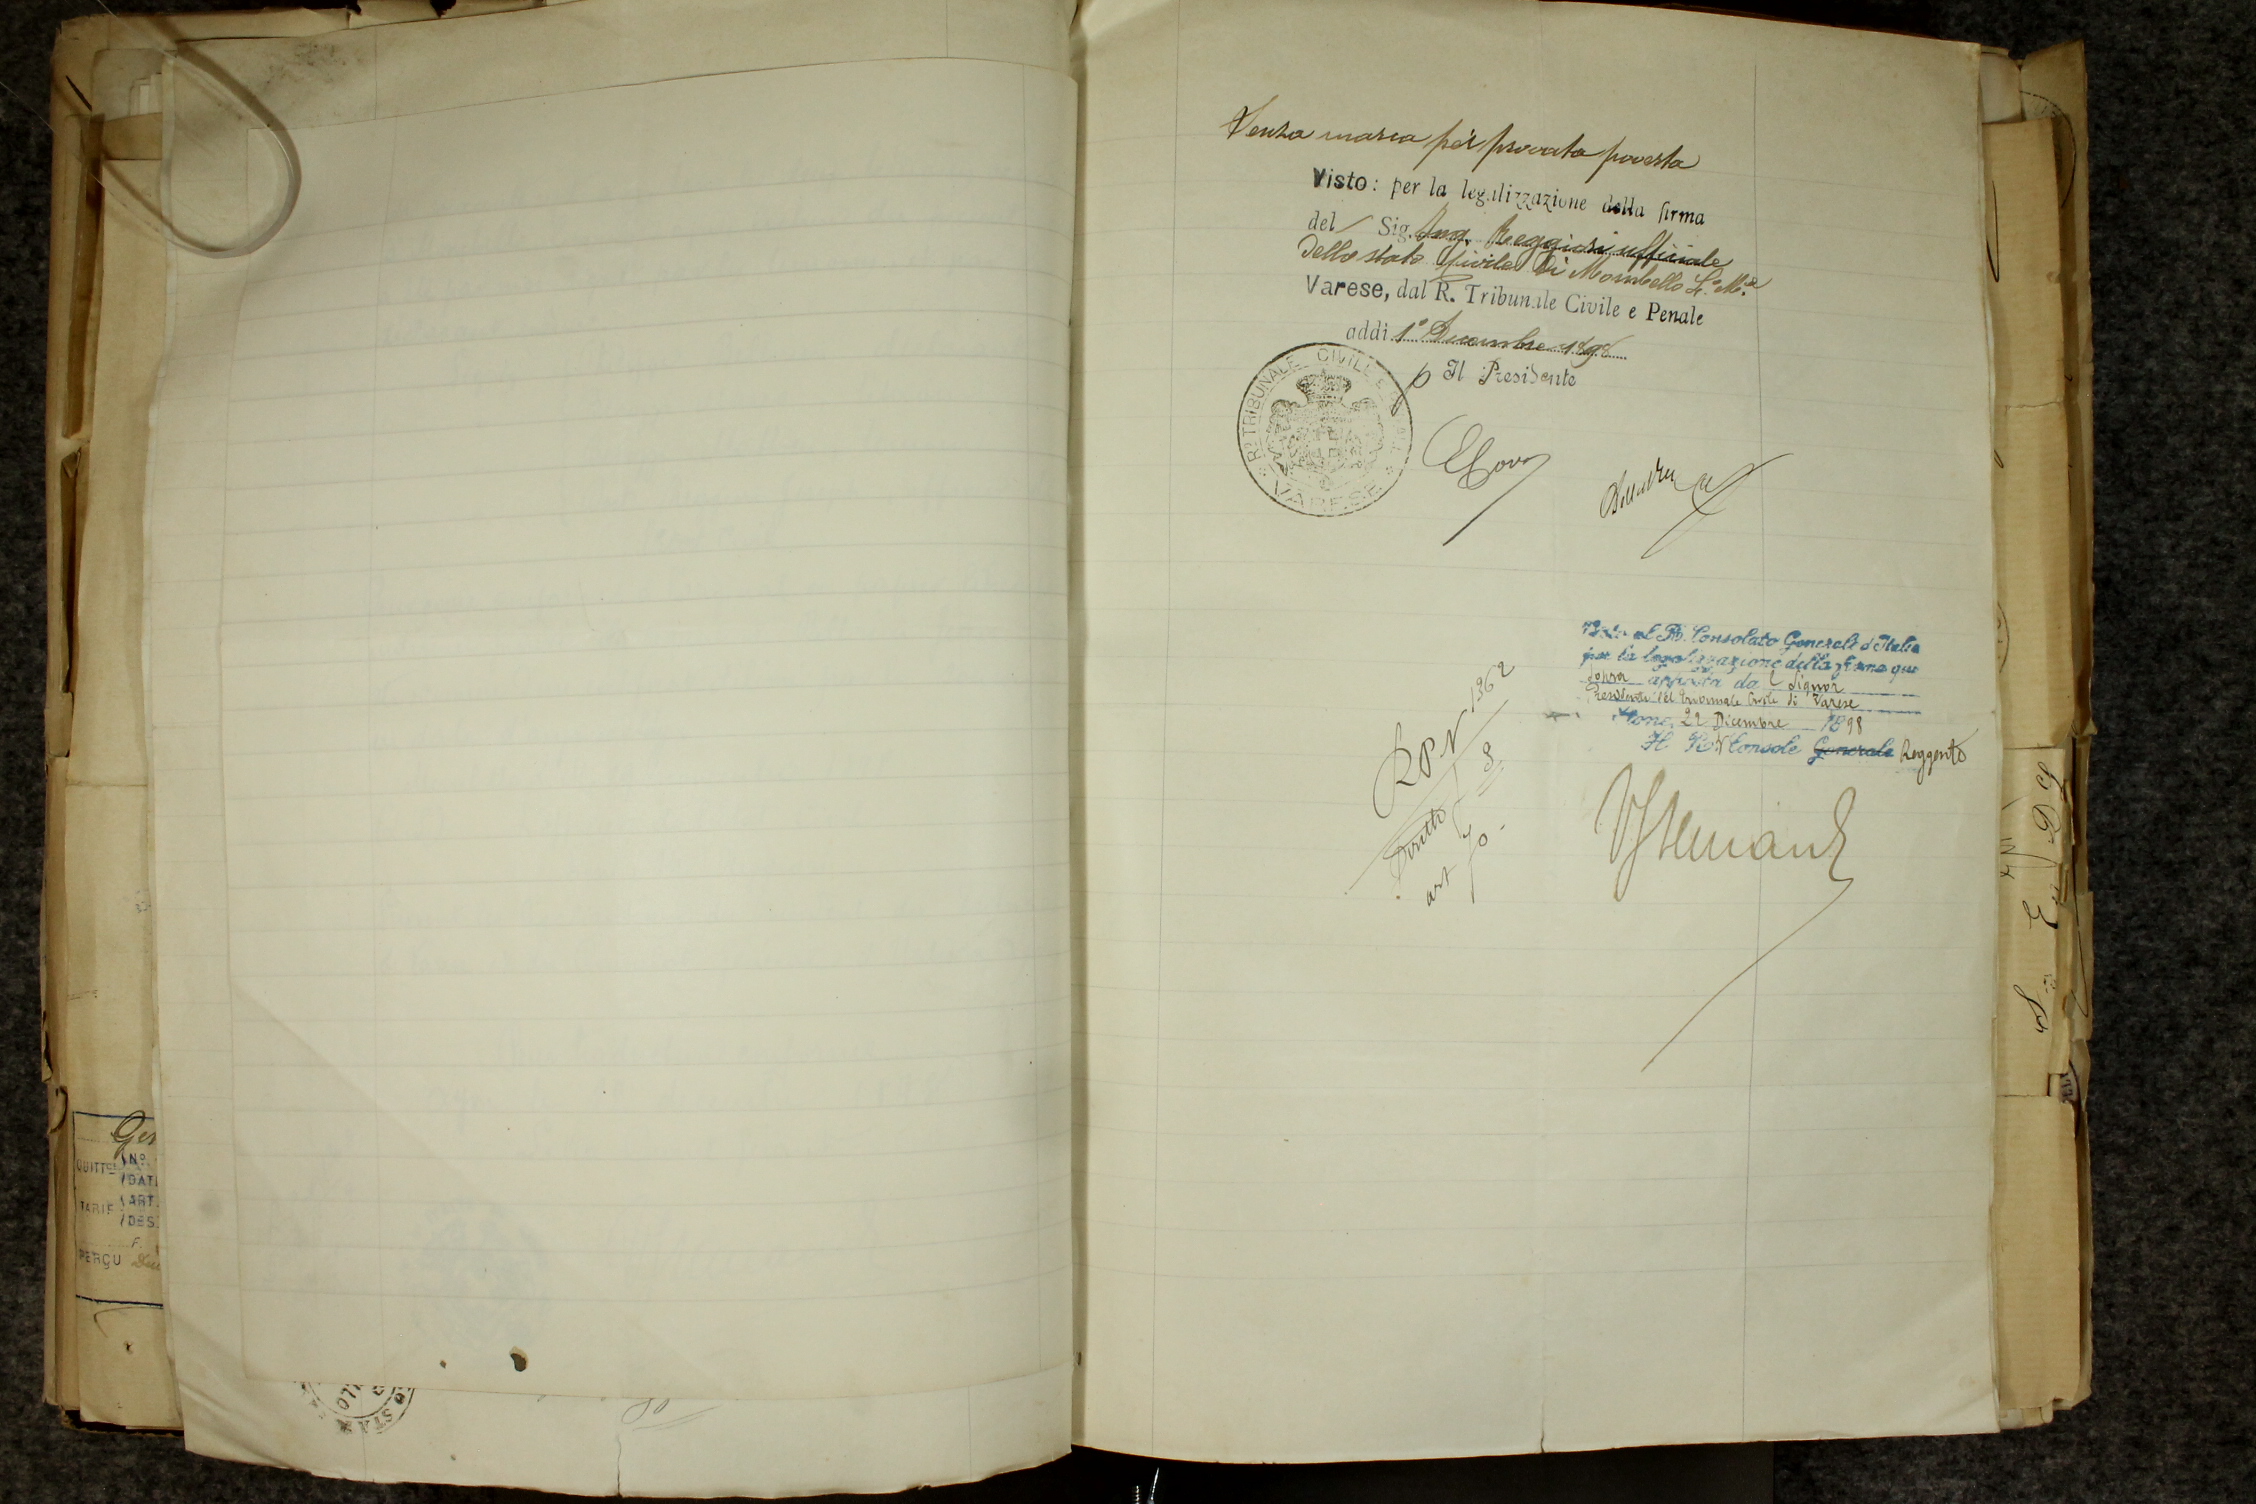 Senza marca per provata povertà
Visto: per la legalizzazione della firma
del Sig. Ing. Reggiori ufficiale
dello stato Civile di Mombello L.o M.e
Varese, dal R. Tribunale Civile e Penale
addi 1° Dicembre 1898
p Il Presidente
Ro TRIBUNALE CIVILE E PENALE
VARESE
Visto al R. Consolato Generale d'Italia
per la legalizzazione della firma qui
sopra apposta da l Signor
Presidente del Tribunale Civile di Varese
22 Dicembre 1898
Il R. V. Console Generale Reggente
R P N 1362
Diritto 3
art 70.
QUITTCE
No
DATE
TARIF
ART.
DES.
F.
PERÇU